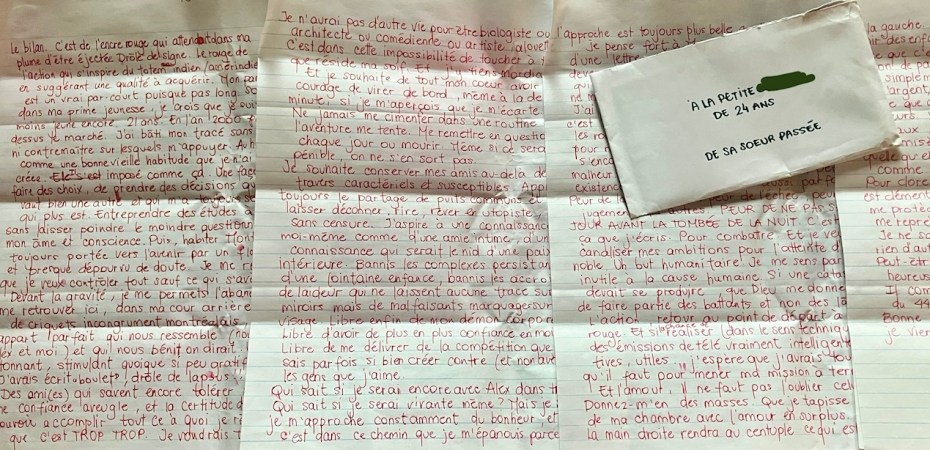 le bilan. C'est de l'encre rouge qui attendait dans ma
plume d'être éjectée. Drôle de signe. Le rouge de
l'action qui s'inspire du totem indien / amérindie
en suggérant une qualité à acquérir. Mon par
est un vrai par-court puisque pas long so
dans ma prime jeunesse, je crois que je suis
moins jeune encore, 21 ans. En l'an 2000
dessus j'e marché. J'ai bâti mon tracé sans
ni contremaître sur lesquels m'appuyer. Au
comme une bonne vieille habitude que je n'ai
créée. Elle s'est imposé comme ça. Une faç
faire des choix, de prendre des décisions qu
vaut bien une autre et qui m'a toujours
qui plus est. Entreprendre des études
sans laisser poindre le moindre question
mon âme et conscience. Puis, habiter Mon
toujours portée vers l'avenir par un
et presque dépourvu de doute. Je me r
que je veux contrôler tout sauf ce qui s'av
Devant la gravité, je me permets l'aban
me retrouver ici, dans ma cour arrière
de criquets incongrument montréalais
appart parfait qui nous ressemble
lex et moi) et qui nous bénit on dirait.
tonnant, stimulant quoique si peu grati
J'avais écrit «boulet», drôle de lapsus
Des ami(es) qui savent encore tolérer
ne confiance aveugle, et la certitude d
ouvoir accomplir tout ce à quoi je r
que c'est TROP TROP. Je voudrais
Je n'aurai pas d'autre vie pour être biologiste ou
architecte ou comédienne ou artiste
C'est dans cette impossibilité de toucher à t
que réside ma soif
Et je souhaite de tout mon coeur avoir
courage de virer de bord, même à la de
minute, si je m'aperçois que je m'écarte
Ne jamais me cimenter dans une routine
l'aventure me tente. Me remettre en questio
chaque jour ou mourir. Même si ce sera
pénible, on ne s'en sort pas.
Je souhaite conserver mes amis au-delà de
travers caractériels et susceptibles. App
toujours le partage de puits communs et
laisser déconner, rire, rêver en utopiste
sans censure. J'aspire à une connaissanc
moi-même comme d'une amie intime, d'un
connaissance qui serait le nid d'une paix
intérieure. Bannis les complexes persistan
d'une lointaine enfance, bannis les acero
de laideur qui ne laissent aucune trace sur
miroirs mais de malfaisants marquages
visage. Libre enfin de mon démo
Libre d'avoir de plus en plus confiance en moi
Libre de me délivrer de la compétition que
sais parfois si bien créer contre (et non ave
les gens que j'aime.
Qui sait si je serai encore avec Alex dans
Qui sait si je serai vivante même? Mais je
je m'approche constamment du bonheur, et
c'est dans ce chemin que je m'épanouis parce
l'approche est toujours plus belle
Je pense fort à
d'une lettre
malheur
existenc
Peur de
jugement
JOUR AVANT LA TOMBÉE DE LA NUIT. C'est
ça que j'écris. Pour combattre. Et je ve
canaliser mes ambitions pour l'atteinte d
noble. Un but humanitaire! Je me sens par
inutile à la cause humaine. Si une cata
devait se produire, que Dieu me donne
de faire partie des battants et non des lâ
L'action, retour au point de départ à
rouge. Et si réaliser (dans le sens techniqu
des émissions de télé vraiment intelligent
tives, utiles, j'espère que j'aurais tou
qu'il faut pour mener ma mission à term
Et l'amour, il ne faut pas l'oublier cel
Donnez-m'en des masses. Que je tapisse
de ma chambre avec l'amour en surplus.
La main droite rendra au centuple ce qui est
À LA PETITE
DE 24 ANS
DE SA SOEUR PASSÉE
la gauche.
comme
Pour clore
est clément
me proté
me repré
Je ne sa
rien d'aut
Peut-êtr
heureus
Il com
du 44
Bonne
je vien